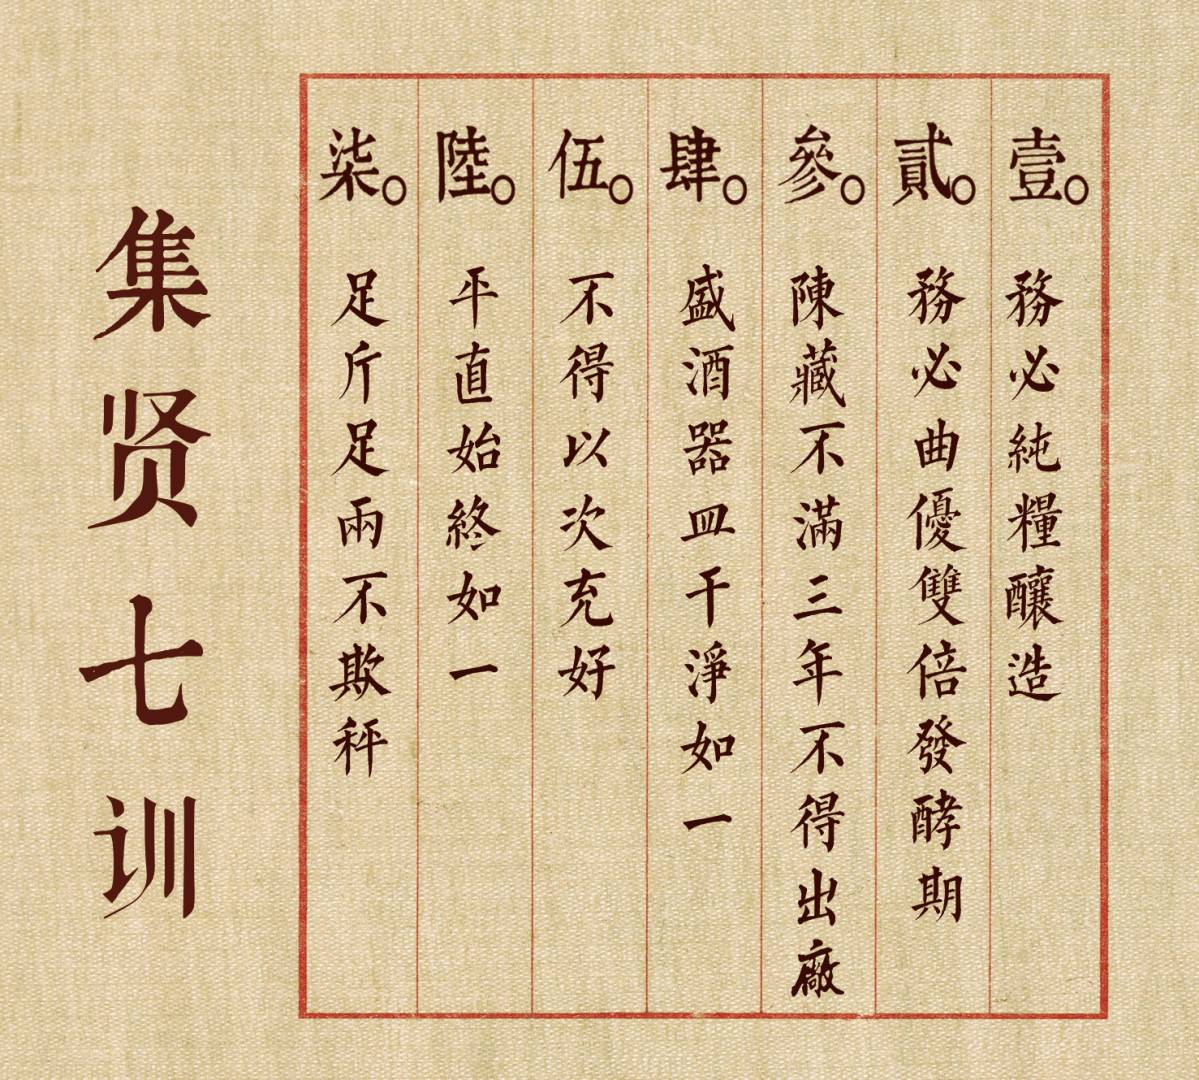 壹。
務必純糧釀造
貳。
務必曲優雙倍發酵期
參。
陳藏不滿三年不得出廠
肆。
盛酒器皿干淨如一
伍。
不得以次充好
陸。
平直始終如一
柒。
足斤足兩不欺秤
集贤七训